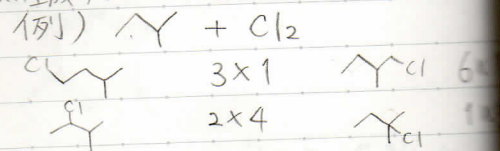 例) + Cl2
Cl 3×1 Cl 6
Cl 2×4 Cl 1